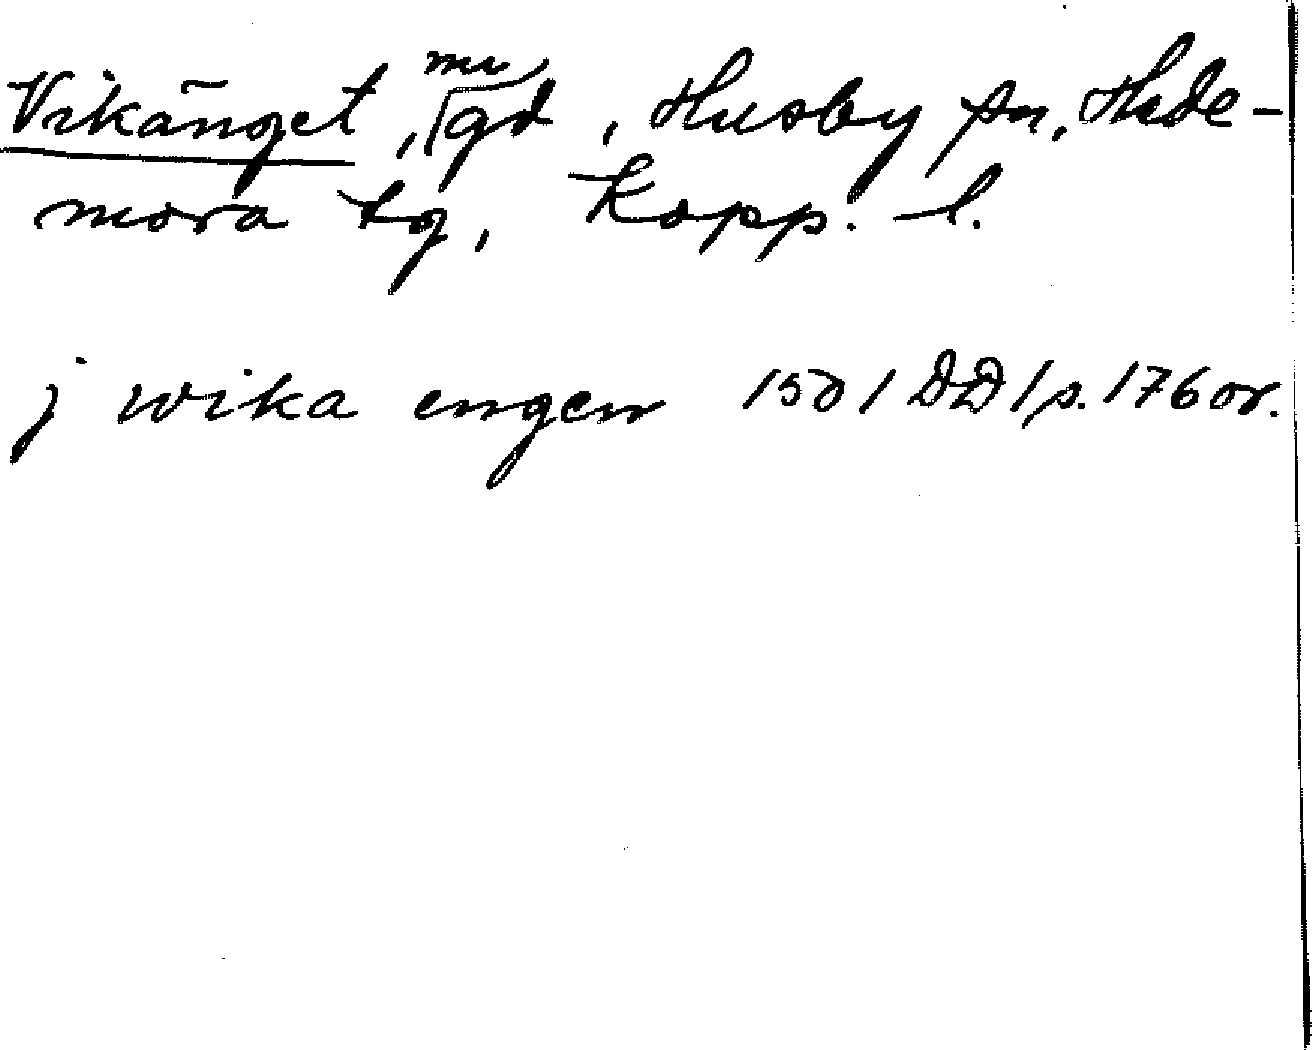 Vikänget, nu gd, Husby sn, Hede-
mora tg, Kopp. l.
j wika engen 1501 DD 1 s. 176 or.